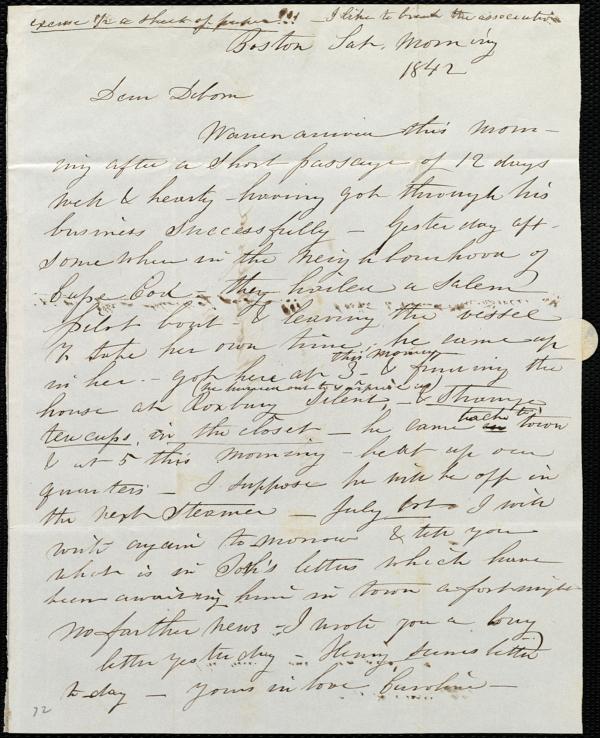 excuse 1/2 a sheet of paper!!! - I like to break the association
Boston Sat. Morning
1842
Dear Debora
Warren arrived this morn-
ing after a short passage of 12 days
well & hearty - having got through his
business successfully - Yesterday aft.
somewhere in the neighbourhood of
Cape Cod - they hailed a Salem
pilot boat - & leaving the vessel
to take her own time, he came up
in her. - got here at 3 - & finding the
this morning
house at Roxbury silent, - & strange
(he hurried out to surprise us)
tea cups, in the closet - he came back to town
& at 5 this morning - beat up our
quarters - I suppose he will be off in
the next Steamer - July 1st. I will
write again tomorrow & tell you
what is in letters which have
been awaiting him in town a fortnight
No farther news - I wrote you a long
letter yesterday - Henry letter
to-day - yours in love Caroline -
72